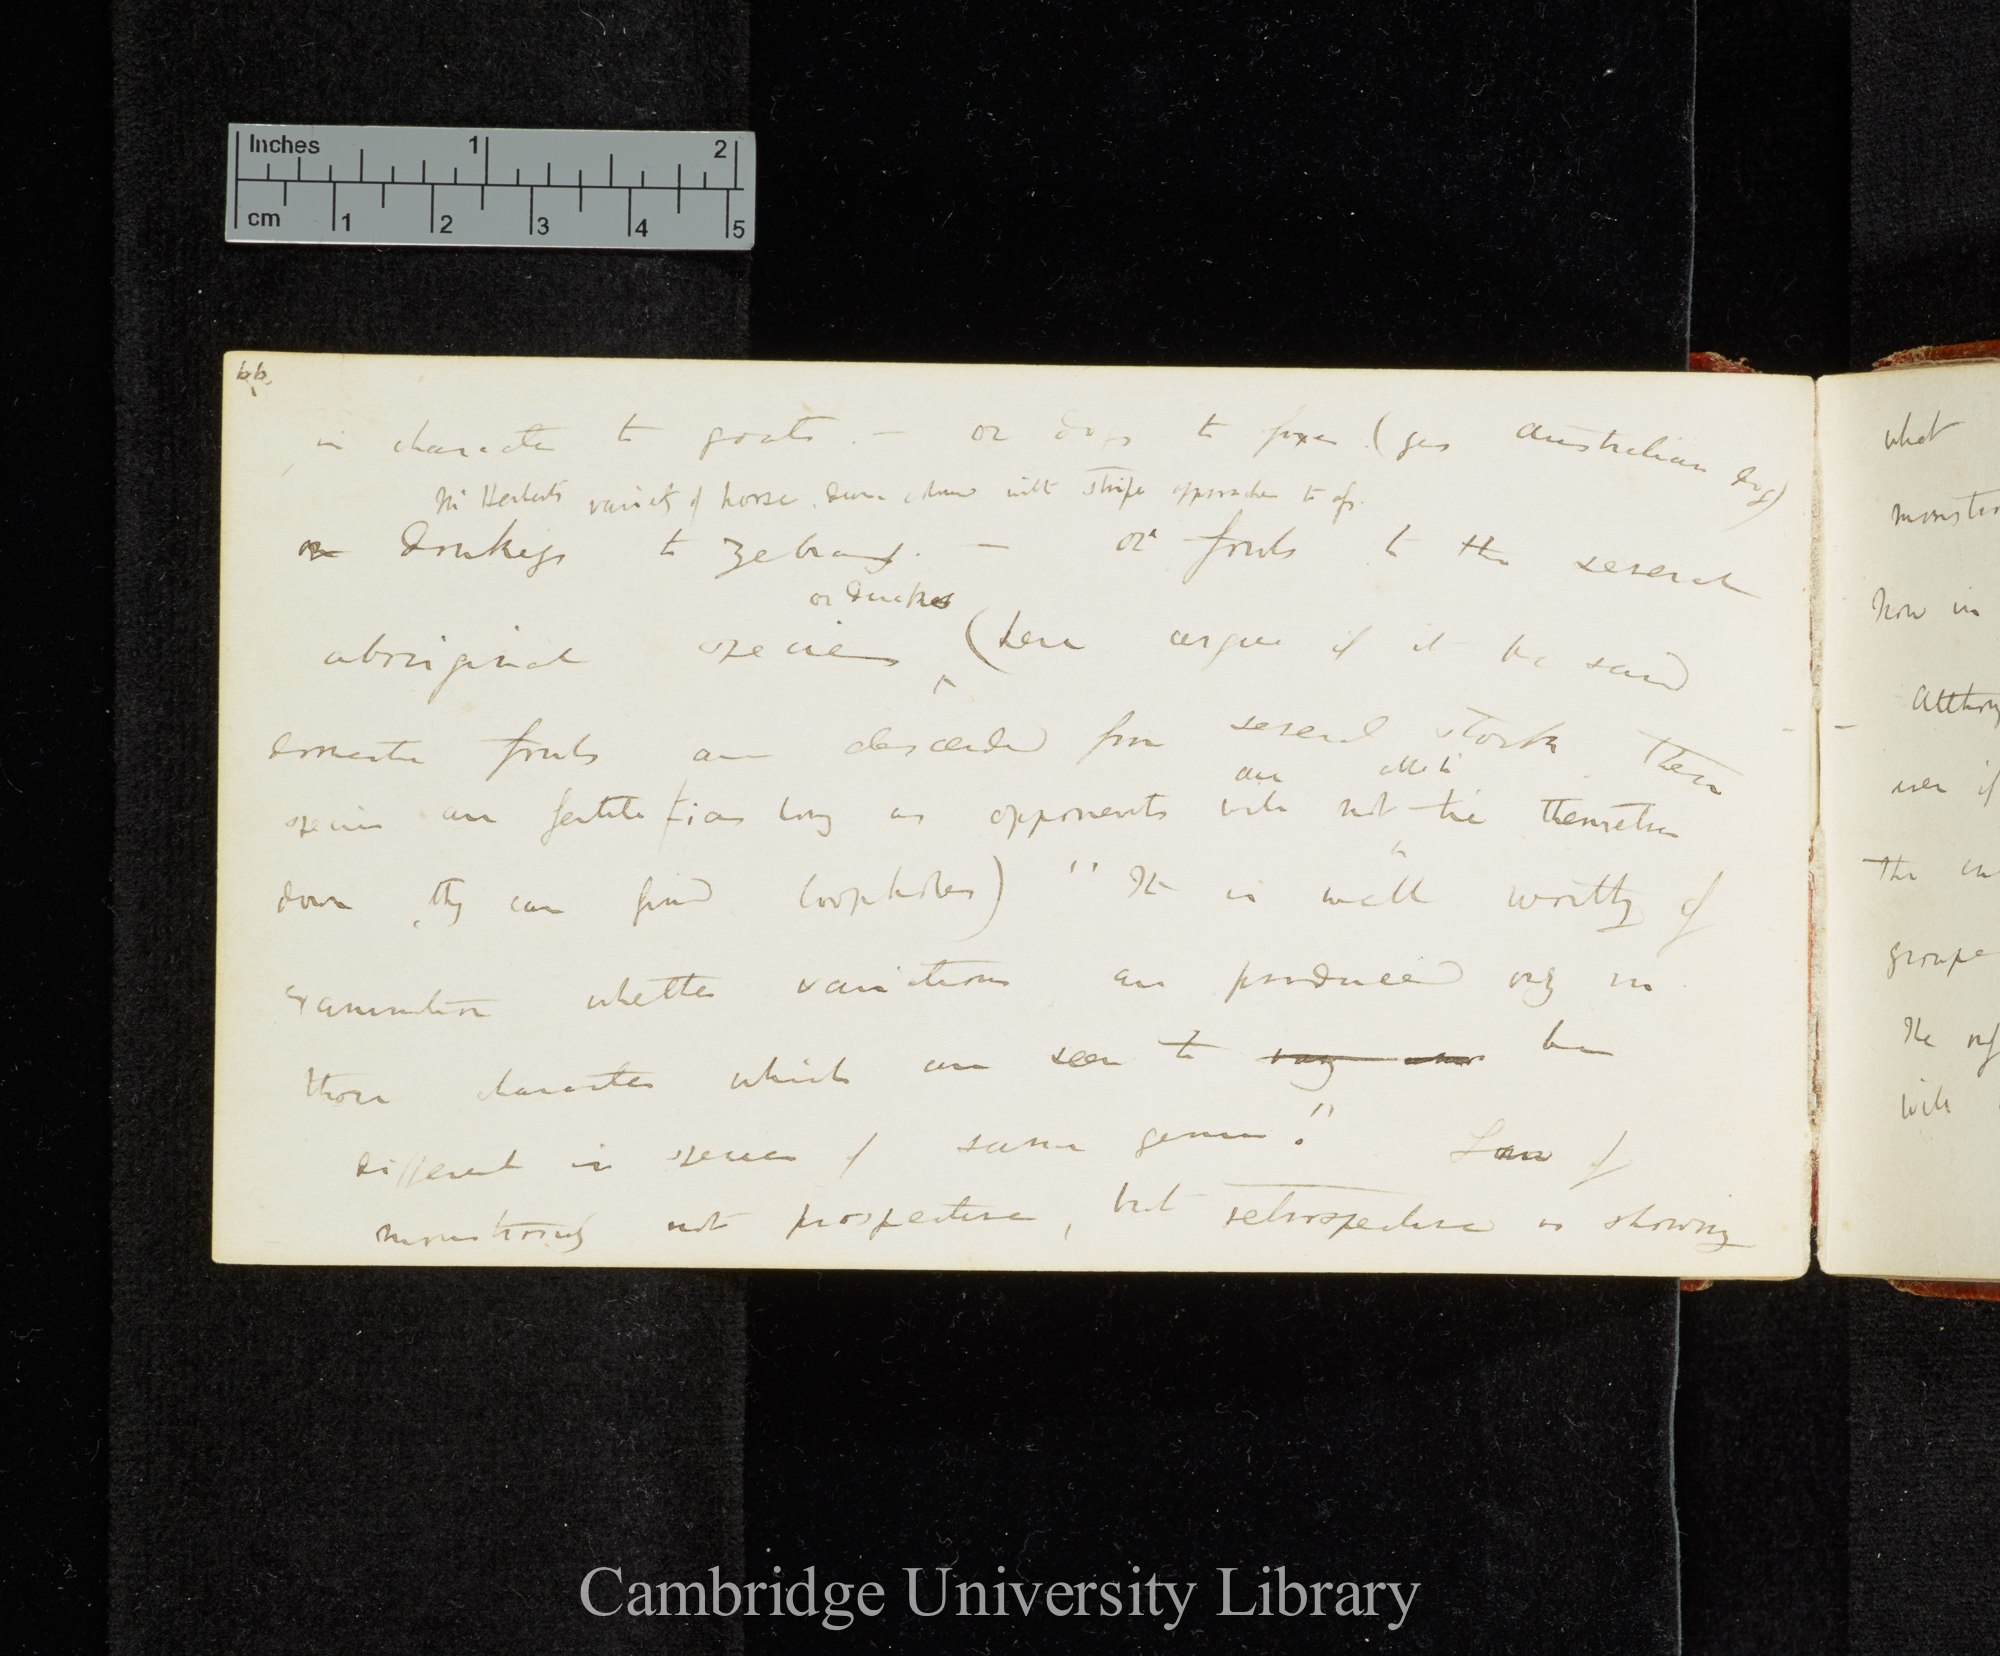 Inches 1 2
cm 1 2 3 4 5
in character to goats. — or dogs to foxes (yes Australian dog)
Mr Herbert's variety of horse, dun coloured with stripe approaches to ass.
or donkeys to zebras. — or fowls to the several
or ducks
aboriginal species (here argue if it be said
domestic fowls are descended from several stocks then
are allowed to
species are fertile (as long as opponents will not tie themselves
down they can find loopholes) " It is well worthy of
examination whether variations are produced only in
those characters which are seen to vary be
different in species of same genus." Law of
monstrosity not prospective, but retrospective in showing
what
how in
even if
The
will
Cambridge University Library